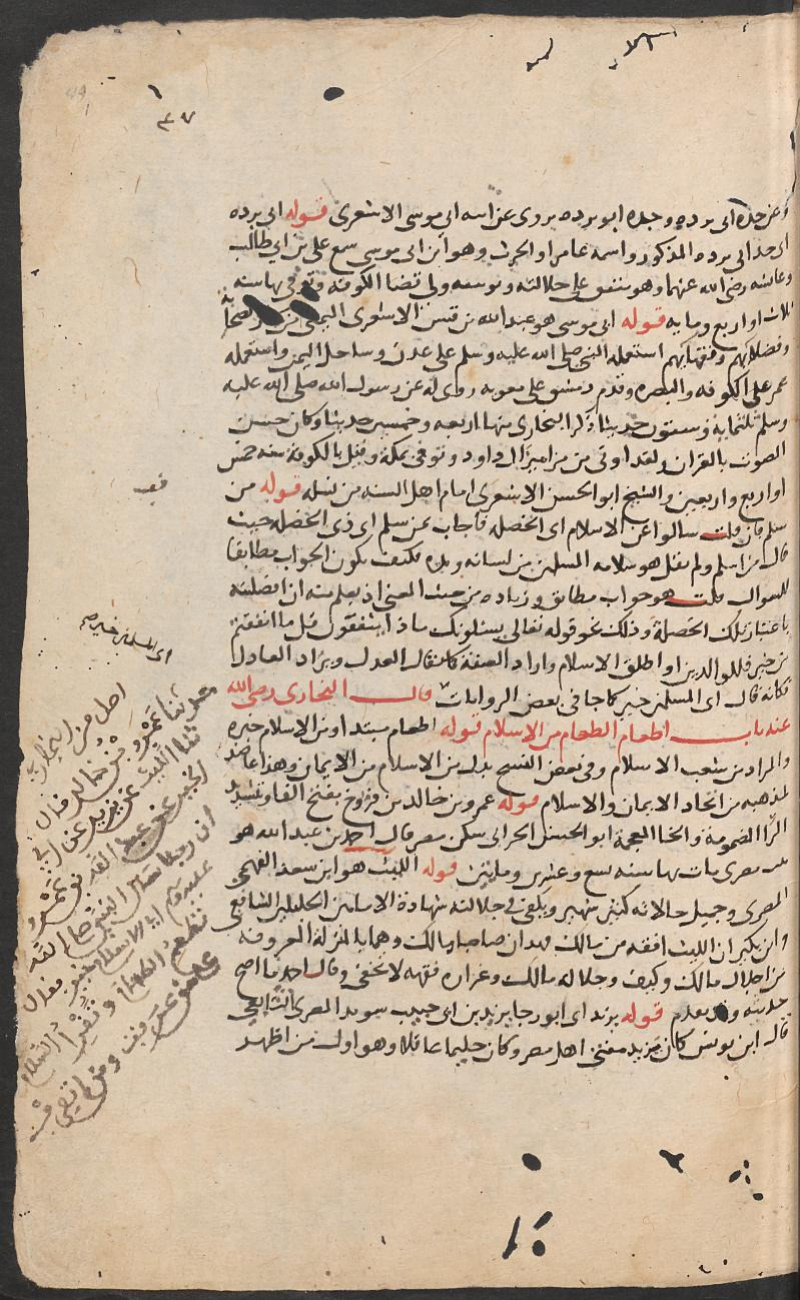 ٣٧
وعن جده ابى برده وجده ابو برده يروى عن ابيه ابى موسى الاشعرى قوله ابى برده
اى جد ابى برده المذكور واسمه عامر او الحرث وهو ابن ابى موسى سمع على بن ابى طالب
وعايشه رضى الله عنهما وهو متفق على جلالته وتوسعه ولى قضا الكوفه وتوفى بها سنه
ثلاث او اربع ومايه قوله ابى موسى هو عبد الله بن قيس الاشعرى اليمنى من الصحابة
وفضلايهم وفقهايهم استعمله النبى صلى الله عليه وسلم على عدن وساحل اليمن واستعمله
عمر على الكوفه والبصره وقدم دمشق على معويه روى له عن رسول الله صلى الله عليه
وسلم ثلثمايه وستون حديثا ذكر البخارى منها اربعه وخمسين حديثا وكان حسن
الصوت بالقران ولقد اوتى من مزامير ال داود وتوفى بمكة وقيل بالكوفة سنه خمس
او اربع واربعين والشيخ ابو الحسن الاشعرى امام اهل السنه من نسله قوله من
سلم فان قلت سالوا عن الاسلام اى الخصله فاجاب بمن سلم اى ذى الخصله حيث
قال من اسلم ولم يقل هو سلامه المسلمين من لسانه ويده فكيف يكون الجواب مطابقا
للسوال قلت هو جواب مطابق وزياده من حيث المعنى اذ يعلم منه ان افضليته
باعتبار تلك الخصلة وذلك نحو قوله تعالى يسئلونك ماذا ينفقون قل ما انفقتم
من خير فللوالدين او اطلق الاسلام واراد الصفة كما يقال العدل ويراد العادل
فكانه قال اى المسلمين خير كما جا فى بعض الروايات قال البخارى رضى الله
عنه باب اطعام الطعام من الاسلام قوله اطعام مبتدا ومن الاسلام خبره
والمراد من شعب الاسلام وفى بعض النسخ بدل من الاسلام من الايمان وهذا عاضد
لمذهبه من اتحاد الايمان والاسلام قوله عمرو بن خالد بن فروخ بفتح الفا وتشديد
الرا المضمومة والخا المعجمة ابو الحسن الحرانى سكن مصر قال احمد بن عبد الله هو
مصرى مات بها سنه تسع وعشرين ومايتين قوله الليث هو ابن سعد الفهمى
المصرى وجميل حالاته كثير شهير ويكفى فى جلالته شهادة الامامين الجليلين الشافعى
وابن بكير ان الليث افقه من مالك فهذان صاحبا مالك وهما بالمنزلة المعروفه
من اجلال مالك وكيف وجلاله مالك وغزاره فقهه لا تخفى وقال احمد ما اصح
حديثه وقد تقدم قوله يزيد اى ابو رجا يزيد بن ابى حبيب سويد المصرى التابعى
قال ابن يونس كان يزيد مفتى اهل مصر وكان حليما عاقلا وهو اول من اظهر
اى المسلمين خير
حدثنا عمرو بن خالد قال
ثنا الليث عن يزيد عن ابى
الخير عن عبد الله بن عمرو
ان رجلا سال النبى صلى الله
عليه وسلم اى الاسلام خير فقال
تطعم الطعام وتقرأ السلام
على من عرفت ومن لم تعرف